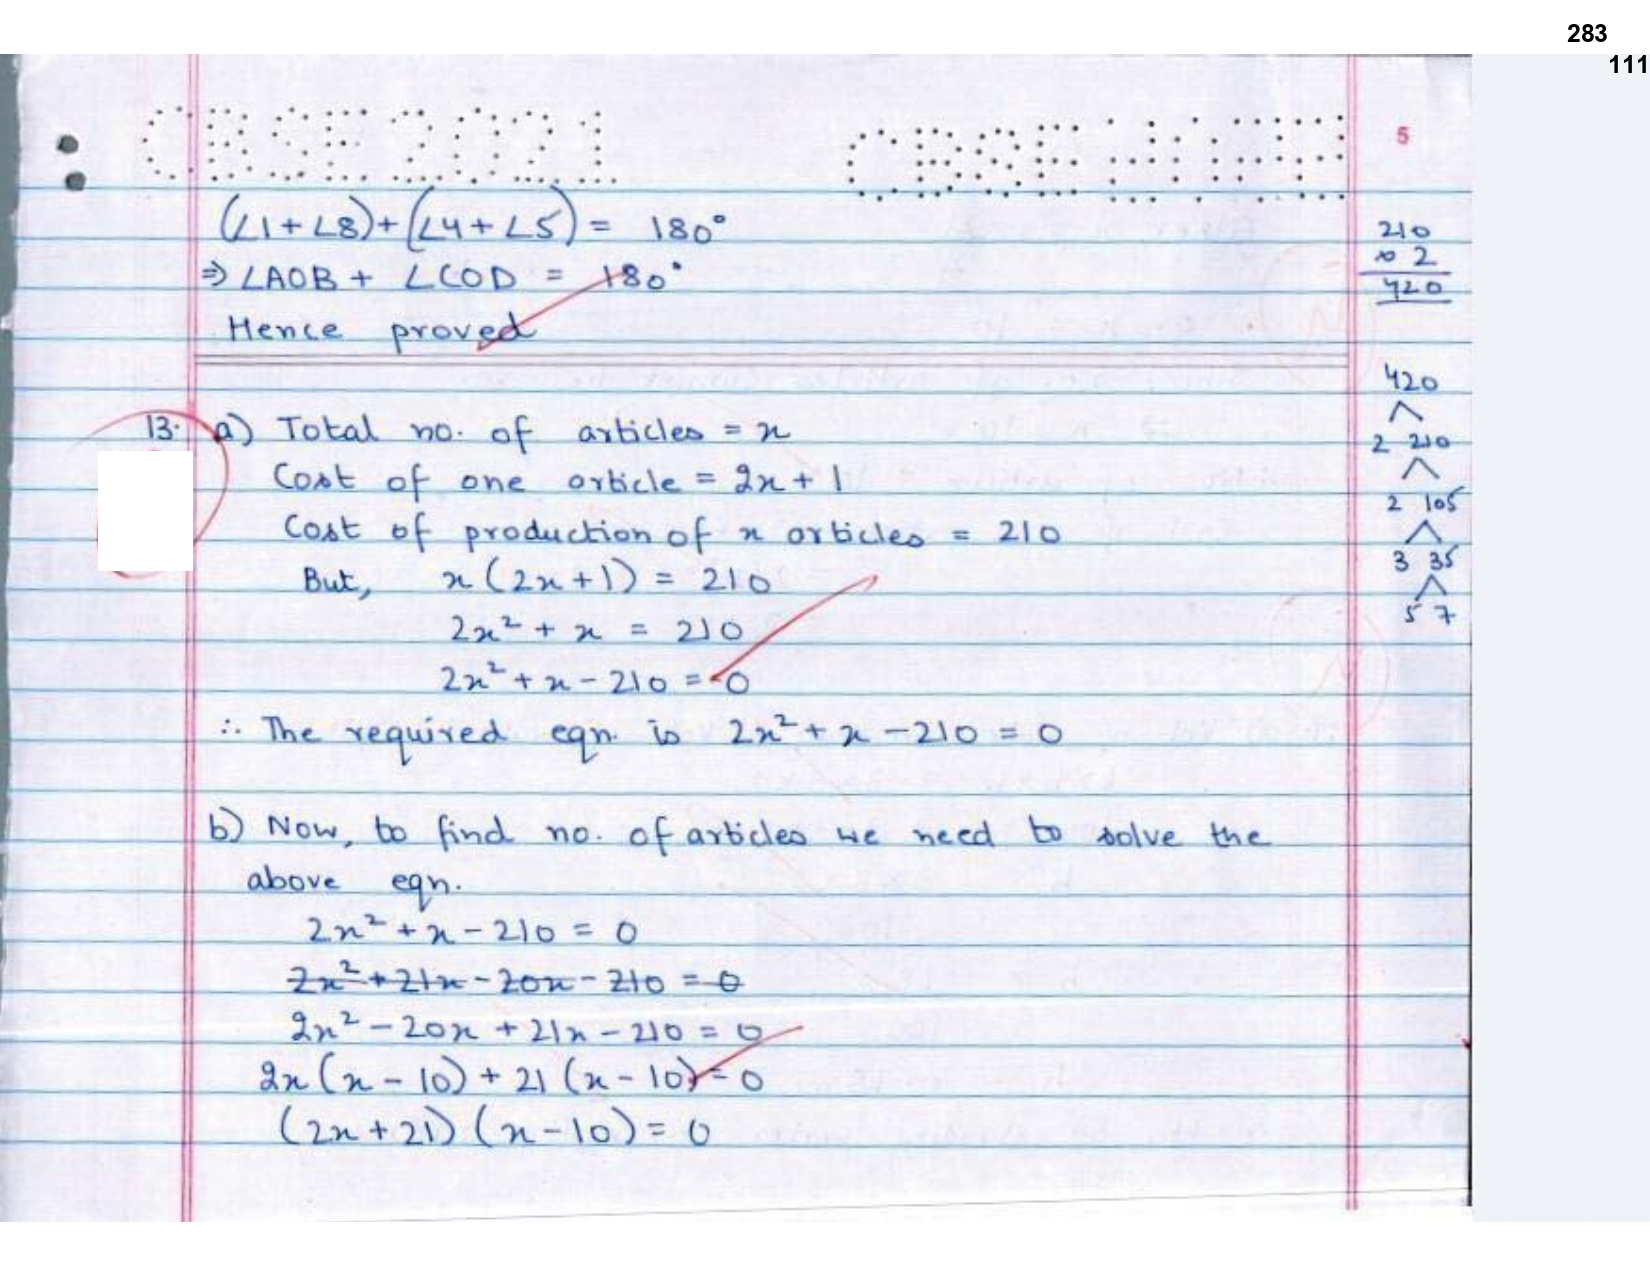 283
111
CBSE 2021
5
(∠1 + ∠8) + (∠4 + ∠5) = 180°
⇒ ∠AOB + ∠COD = 180°
Hence proved
210
× 2
420
420
2 210
2 105
3 35
5 7
13. a) Total no. of articles = x
Cost of one article = 2x + 1
Cost of production of x articles = 210
But, x (2x + 1) = 210
2x² + x = 210
2x² + x - 210 = 0
∴ The required eqn. is 2x² + x - 210 = 0
b) Now, to find no. of articles we need to solve the
above eqn.
2x² + x - 210 = 0
2x² + 21x - 20x - 210 = 0
2x² - 20x + 21x - 210 = 0
2x (x - 10) + 21 (x - 10) = 0
(2x + 21) (x - 10) = 0